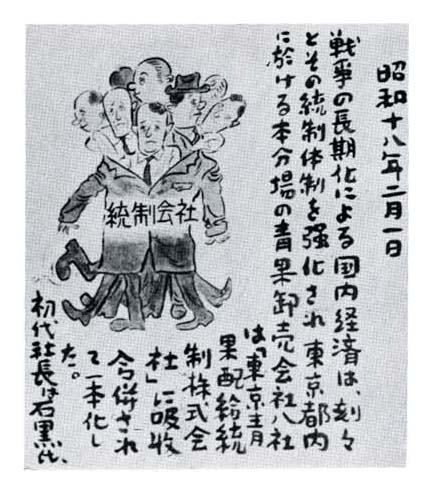 昭和十八年二月一日
戦争の長期化による国内経済は、刻々
とその統制体制を強化され東京都内
に於ける本分場の青果卸売会社八社
は「東京青
果配給統
制株式会
社」に吸収
合併され
て一本化し
た。
初代社長は石黒氏、
統制会社